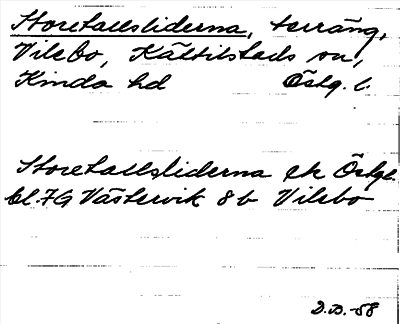 Storetallsliderna, terräng,
Vilebo, Kättilstads sn,
Kinda hd Östg. l.
Storetallsliderna ek Östgl.
bl. 7G Västervik 8b Vilebo
D.B. -58